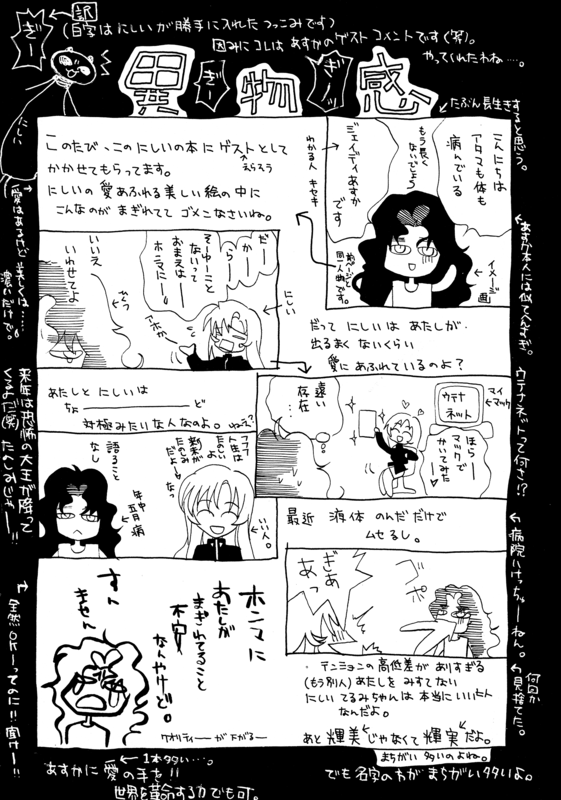 訳
(白字はにしいが勝手に入れたつっこみです)
因みにコレはあすかのゲストコメントです(笑)。
やってくれたわね……。
ぎー
にしい
異物感
ぎ
ぎ
たぶん長生きすると思う。
こんにちは
アタマも体も
病んでいる
もう長く
ないでしょう
ジェイディあすか
です
わかる人
キセキ
前ページと
同一人物です。
イメージ画
あすか本人には似てへんすぎ。
このたび、このにしいの本にゲストとして
えらそう
かかせてもらってます。
にしいの愛あふれる美しい絵の中に
こんなのがまぎれててゴメンなさいね。
愛はあるけど美しくは……
濃いだけで。
だー
かー
らー
そーゆーこと
ないって
おまえはー
ホンマにー!
アホかー
にしい
いいえ
いわせてよ
だってにしいはあたしが
出るまくないくらい
愛にあふれているのよ?
あたしとにしいは
ちょーーーーど
対極みたいな人なのよ。ねぇ?
遠い
存在…
ウテナ
ネット
マイ
マック
ほらー
マックで
かいてみたー
ウテナネットって何さ!?
フフフ
人生は
たのしい
新米が
たのしみ
だよなっ
いい人。
語ること
なし
年中
五月病
来年は恐怖の大王が降って
くるよ(笑)たのしみじゃーー!!
最近 液体 のんだだけで
ムセるし。
病院いけっちゅーねん。
ぎゃ
あっ
ホンマに
あたしが
まぎれてること
不安
なんやけど。
すん
ません
クオリティーーがさがるー
全然OKーってのに!!聞けー!!
・テンションの高低差がありすぎる
(もう別人)あたしをみすてない
にしいてるみちゃんは本当にいい人
なんだよ。
何回か
見捨てた。
あと輝美じゃなくて輝実だよ。
まちがい多いのよね。
でも名字の方がまちがい多いよ。
1本タタい…。
あすかに愛の手を!!
世界を革命する力でも可。